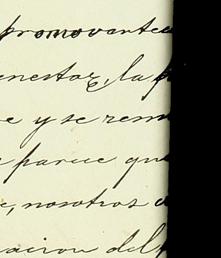 promovantes
enestar, la p
e y se rem
parece que
e, nosotros d
acion del p